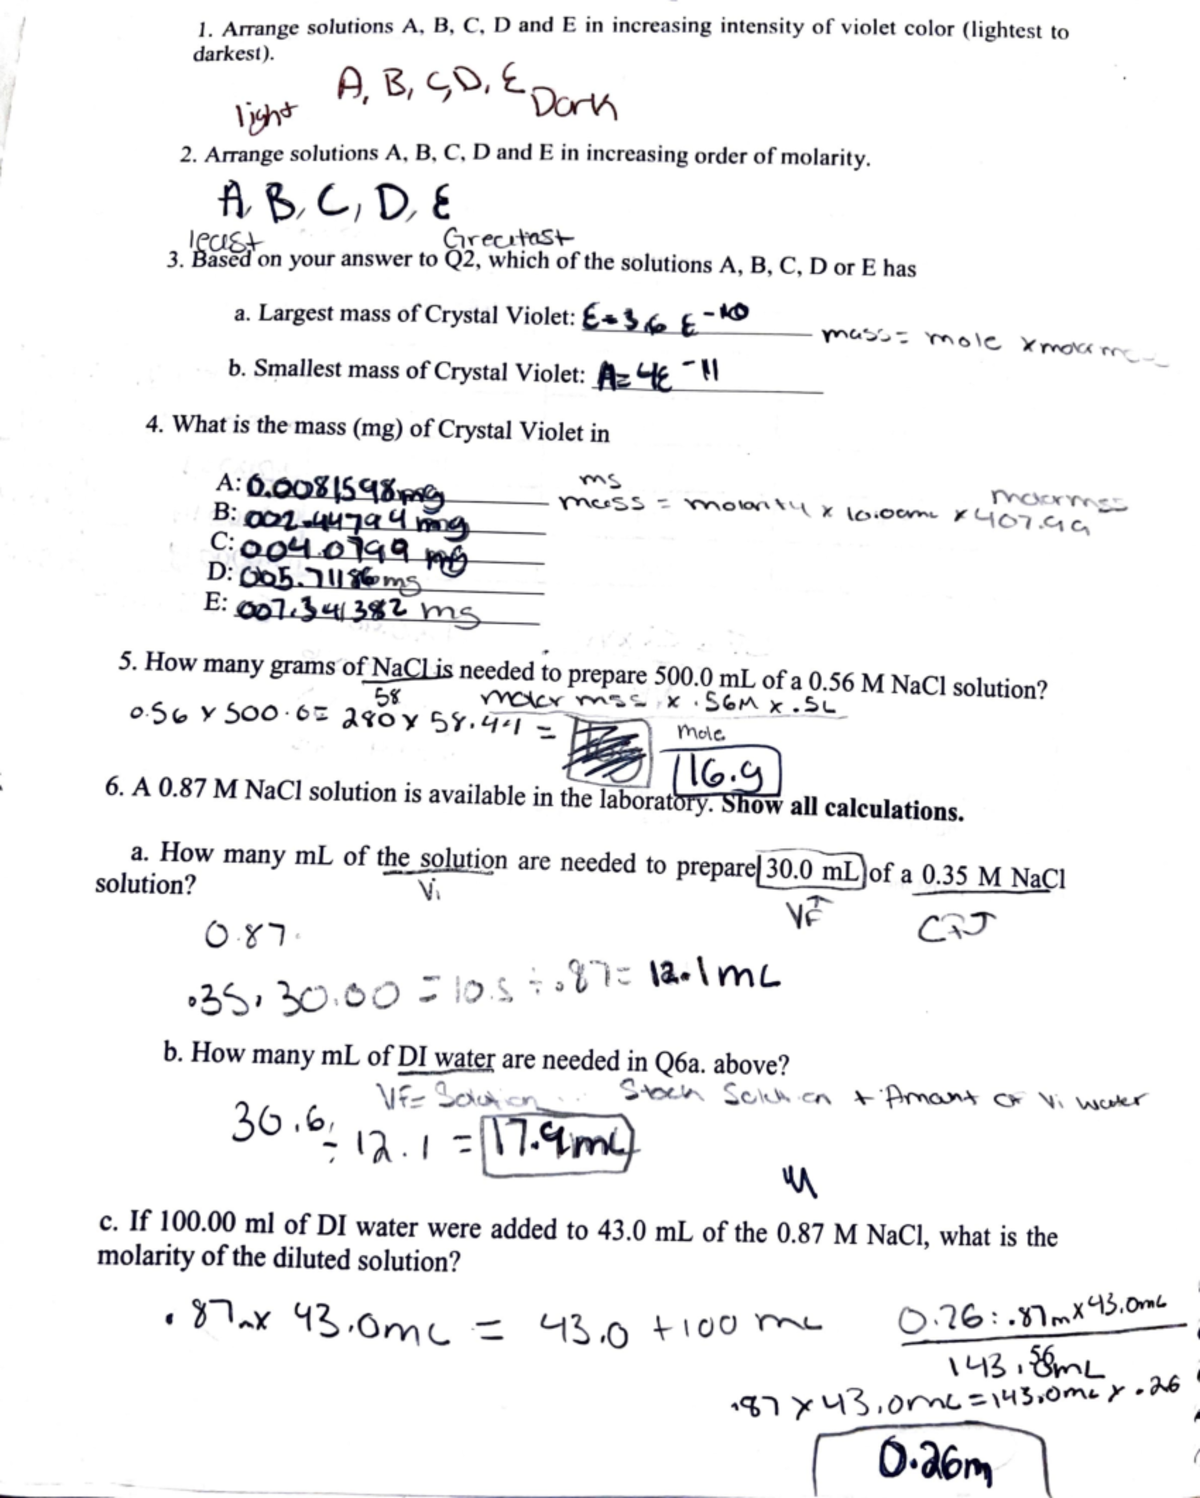 1. Arrange solutions A, B, C, D and E in increasing intensity of violet color (lightest to
darkest).
A, B, C, D, E
light Dark
2. Arrange solutions A, B, C, D and E in increasing order of molarity.
A, B, C, D, E
least Greatest
3. Based on your answer to Q2, which of the solutions A, B, C, D or E has
a. Largest mass of Crystal Violet: E=3.6 E-10
mass = mole x molar
b. Smallest mass of Crystal Violet: A=4E-11
4. What is the mass (mg) of Crystal Violet in
A: 0.0081598mg
ms molarmss
B: 002.44794mg
mass = molarity x 10.00mL x 407.99
C: 004.0799 mg
D: 005.71186 mg
E: 007.341382 mg
5. How many grams of NaCl is needed to prepare 500.0 mL of a 0.56 M NaCl solution?
58 molar mss x .56M x .5L
0.56 x 500.0= 280 x 58.44 =
mole
16.g
6. A 0.87 M NaCl solution is available in the laboratory. Show all calculations.
a. How many mL of the solution are needed to prepare 30.0 mL of a 0.35 M NaCl
solution?
Vi VF
0.87.
.35 . 30.00 = 10.5 ÷ .87 = 12.1mL
b. How many mL of DI water are needed in Q6a. above?
VF= Solution Stock Solution + Amant of Vi water
30.0 - 12.1 = 17.9mL
c. If 100.00 ml of DI water were added to 43.0 mL of the 0.87 M NaCl, what is the
molarity of the diluted solution?
.87m x 43.0mL = 43.0 +100 mL
0.26: .87m x 43.0mL
143. mL
.87 x 43.0mL = 143.0mL x .26
0.26m